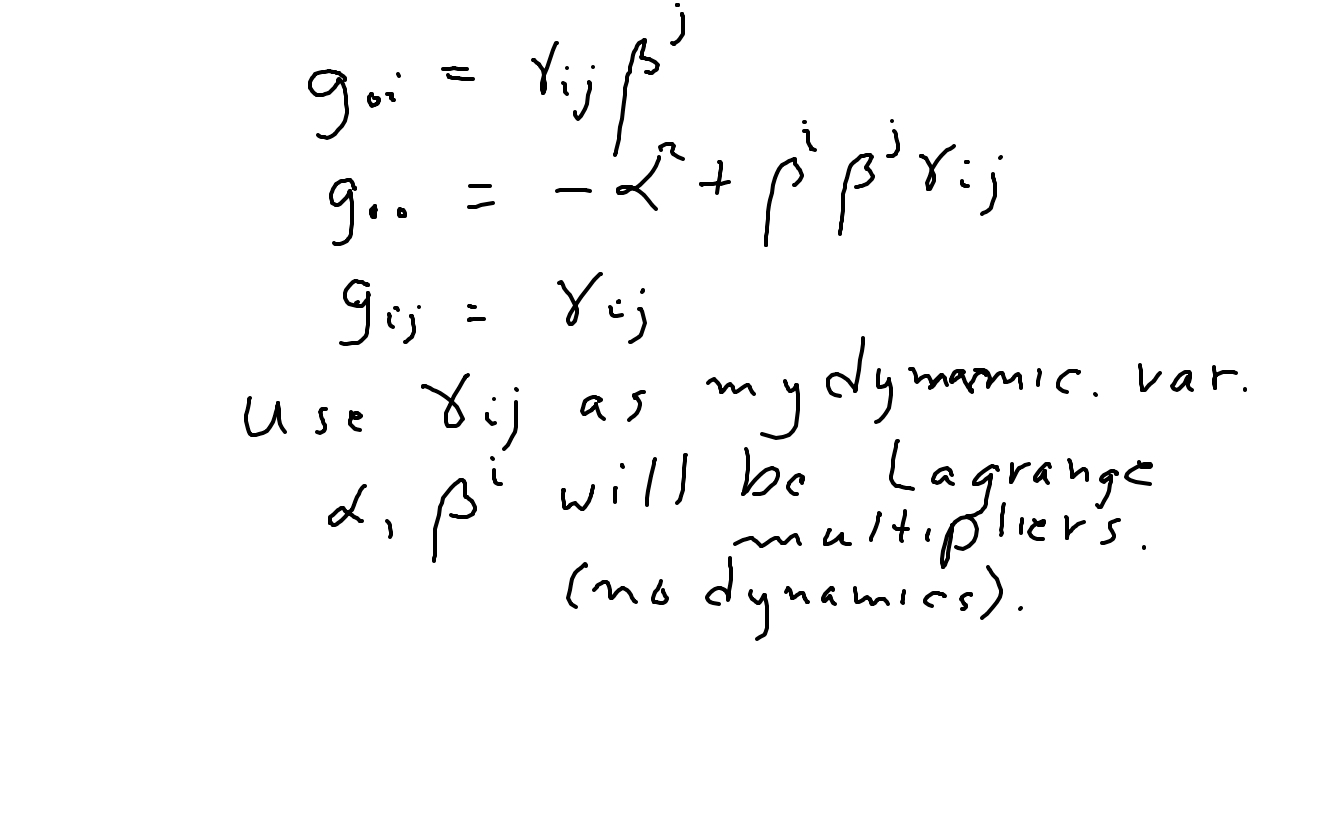 g₀ᵢ = γᵢⱼ βʲ
g₀₀ = − α² + βⁱ βʲ γᵢⱼ
gᵢⱼ = γᵢⱼ
use γᵢⱼ as my dynamic. var.
α, βⁱ will be Lagrange
multipliers.
(no dynamics).